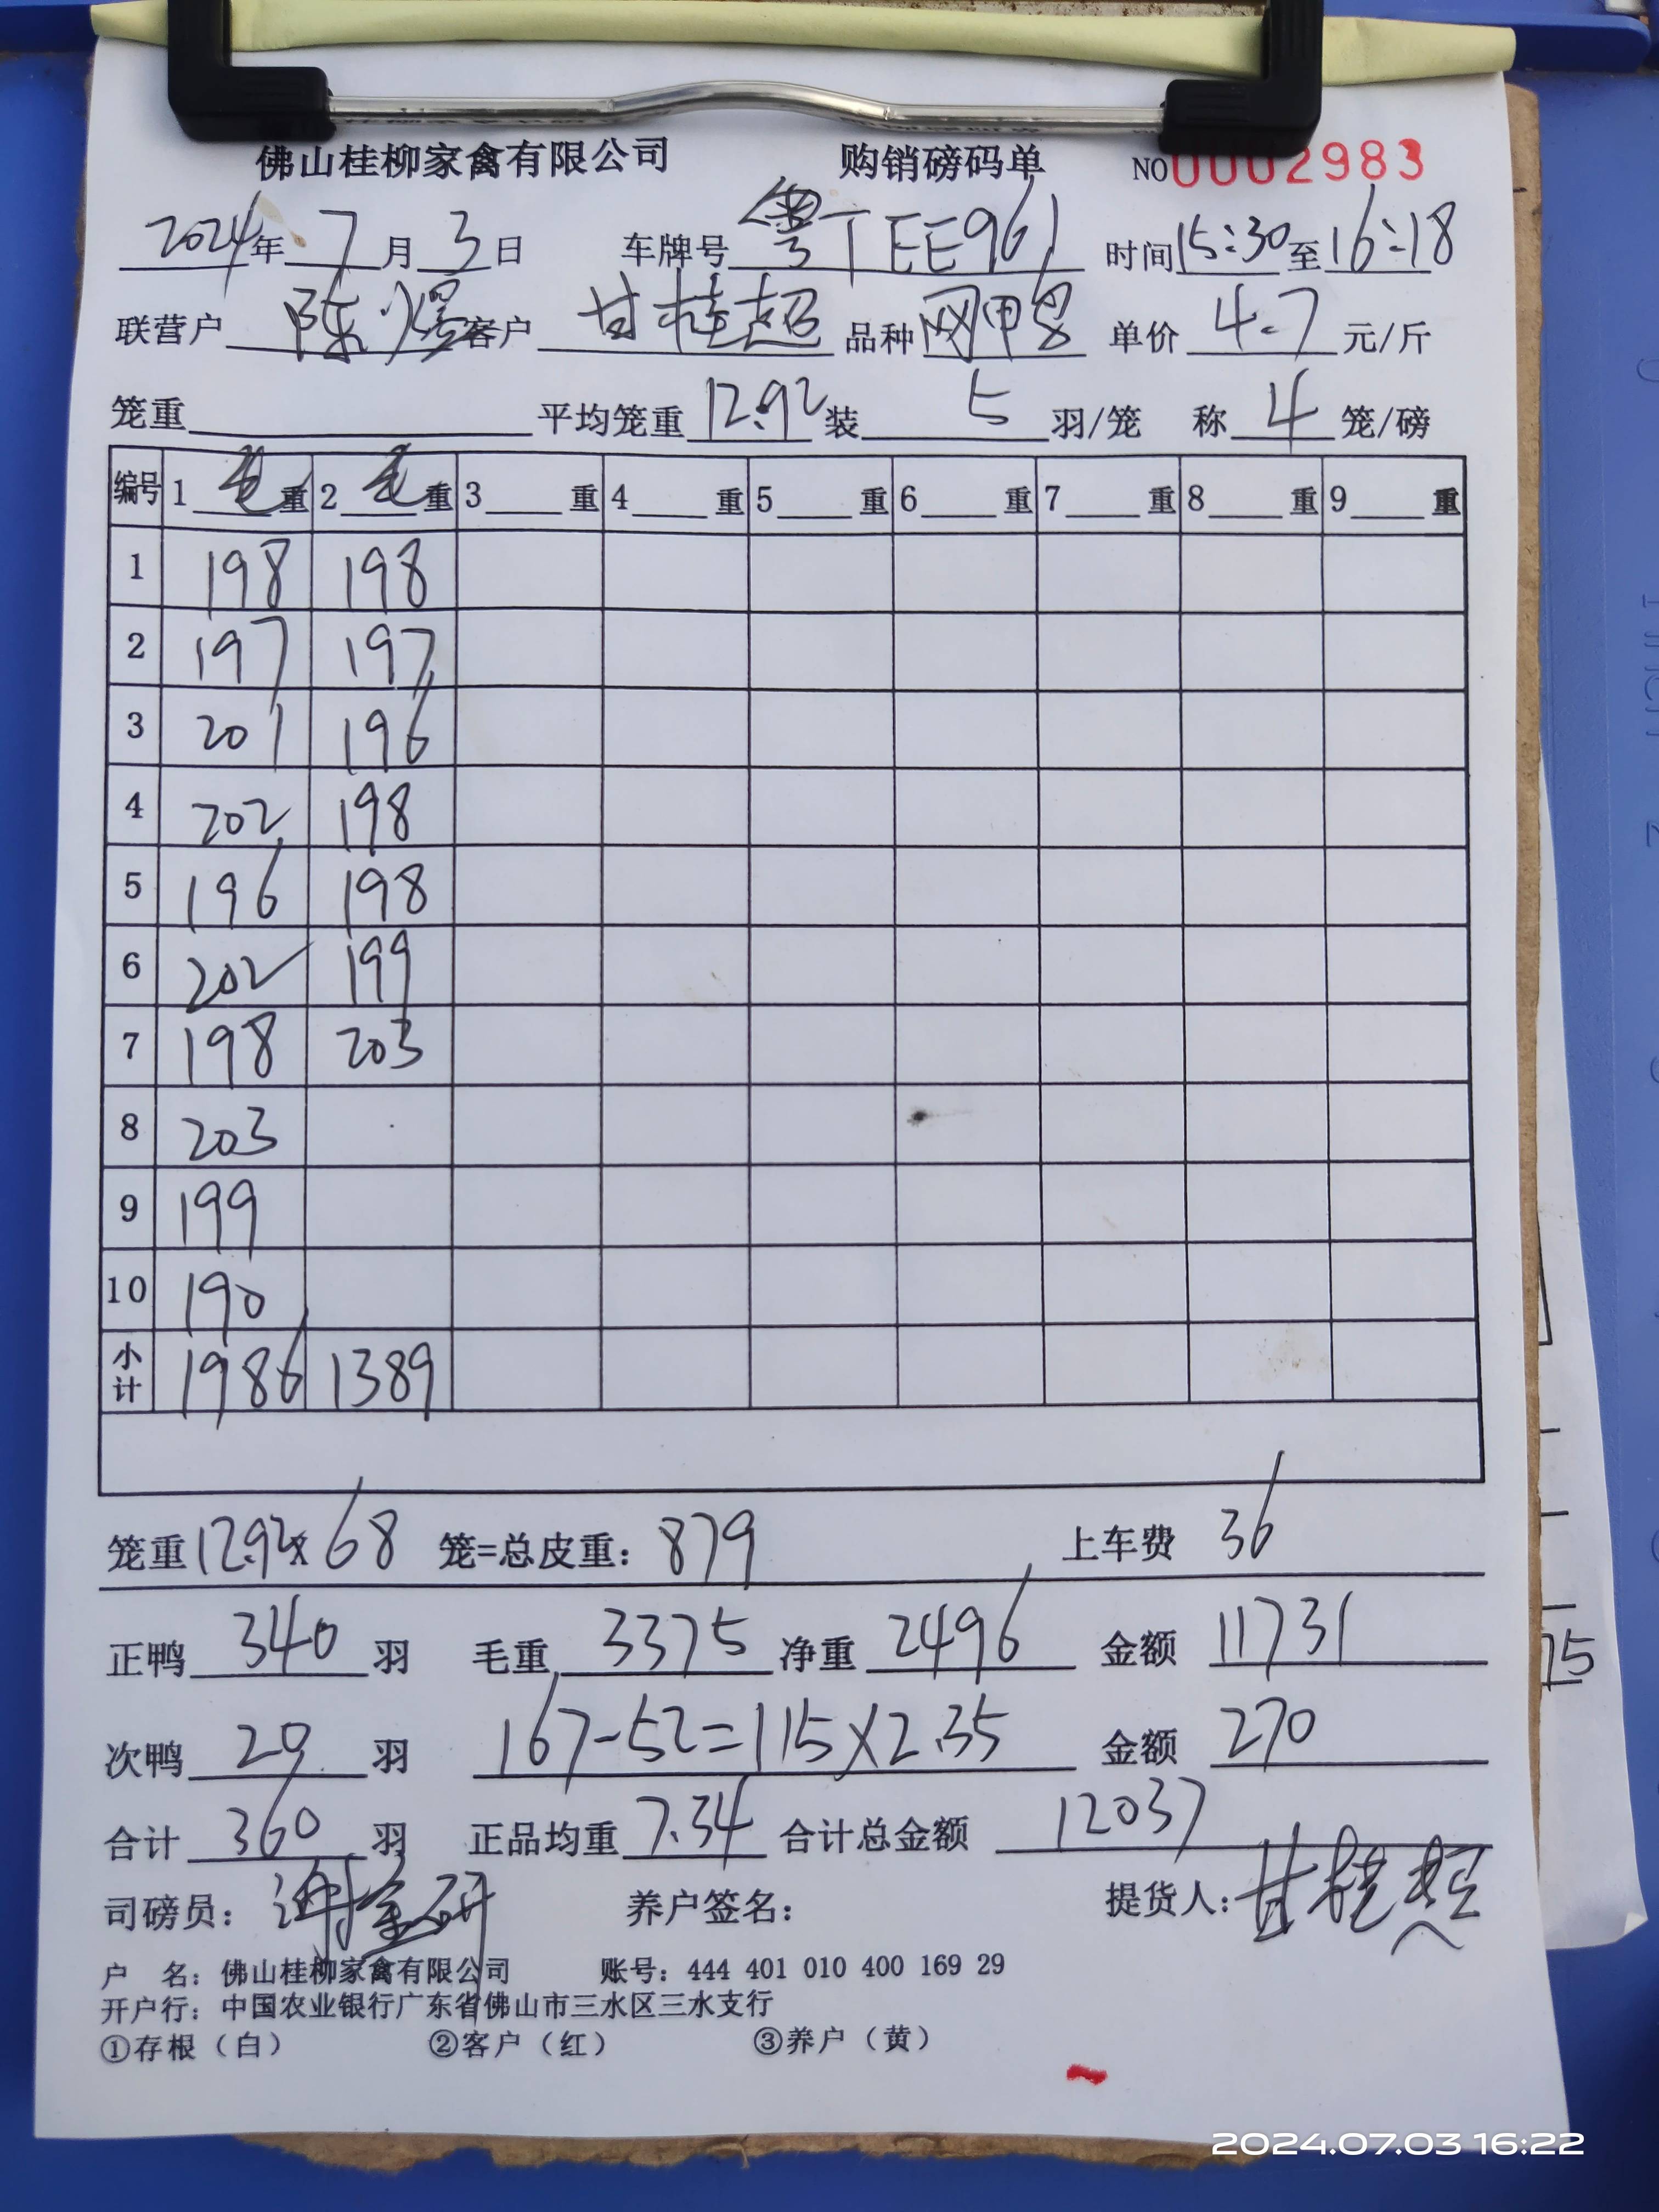 佛山桂柳家禽有限公司 购销磅码单 NO0002983
2024年7月3日 车牌号粤TEE961 时间15:30至16:18
联营户 陈 客户 甘桂超 品种 单价 4.7 元/斤
笼重 平均笼重12.92装5羽/笼 称4笼/磅
编号 1毛重 2毛重 3重 4重 5重 6重 7重 8重 9重
1 198 198
2 197 197
3 201 196
4 202 198
5 196 198
6 202 199
7 198 203
8 203
9 199
10 190
小计 1986 1389
笼重12.92x68 笼=总皮重:879 上车费 36
正鸭340羽 毛重3375净重2496 金额11731
次鸭20羽 167-52=115X2.35 金额270
合计360羽 正品均重7.34合计总金额12037
司磅员: 养户签名: 提货人:甘桂超
户 名:佛山桂柳家禽有限公司 账号:444 401 010 400 169 29
开户行:中国农业银行广东省佛山市三水区三水支行
①存根(白) ②客户(红) ③养户(黄)
75
2024.07.03 16:22